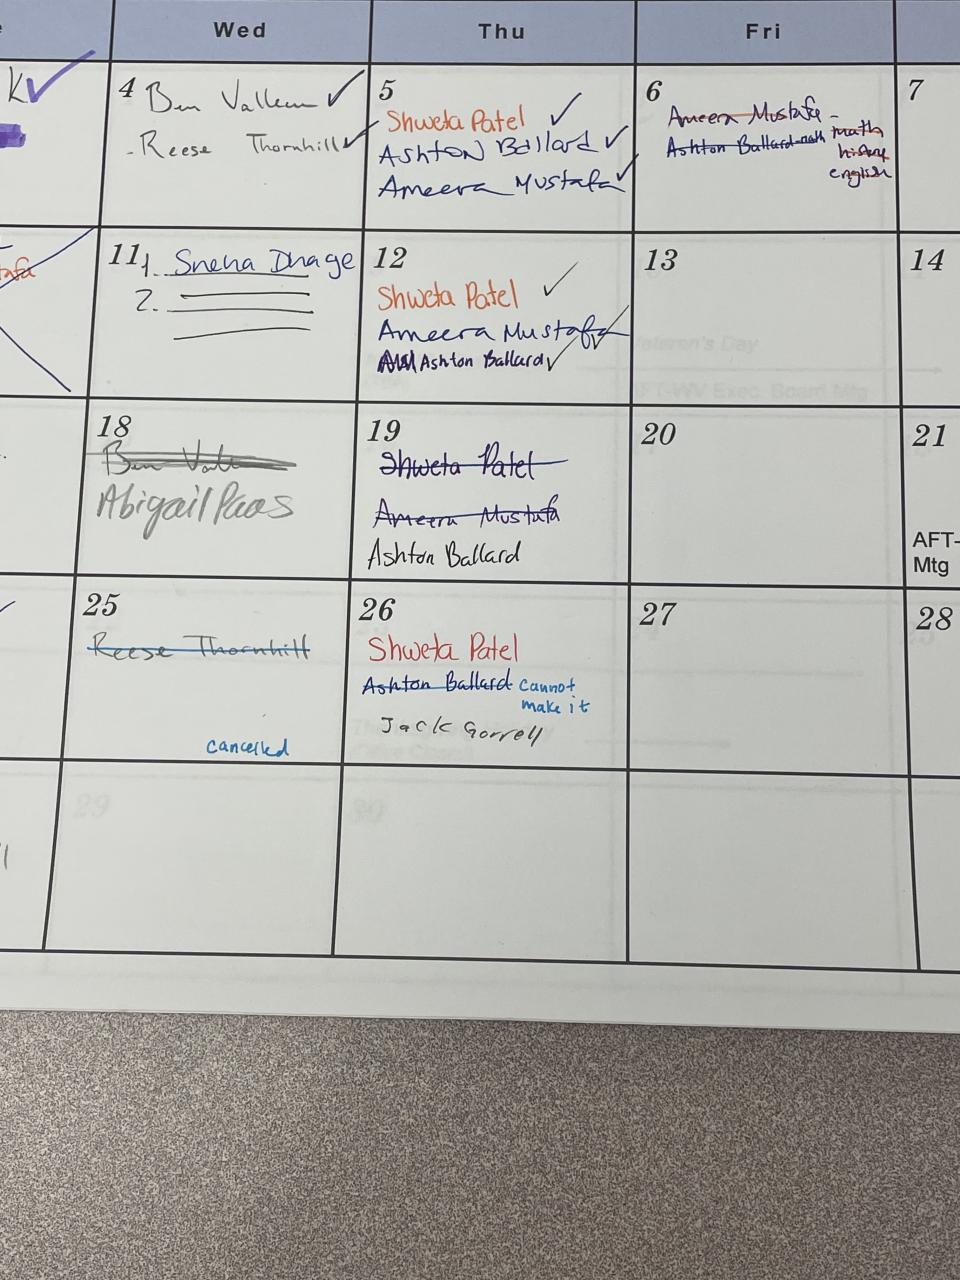 Wed Thu Fri
K
4 Ben
Reese Thornhill
5
Shweta Patel
Ashton Ballard
Ameera Mustafa
6
Ameera Mustafa - math
Ashton Ballard-math history
english
7
11 1. Sneha Dhage
2.
12
Shweta Patel
Ameera Mustafa
Ashton Ballard
13
Veteran's Day
AFT-WV Exec. Board Mtg
14
18
Ben
Abigail Paos
19
Shweta Patel
Ameera Mustafa
Ashton Ballard
20
21
AFT-
Mtg
25
Reese Thornhill
cancelled
26
Shweta Patel
Ashton Ballard cannot
make it
Jack Gorrell
27
28
29 30